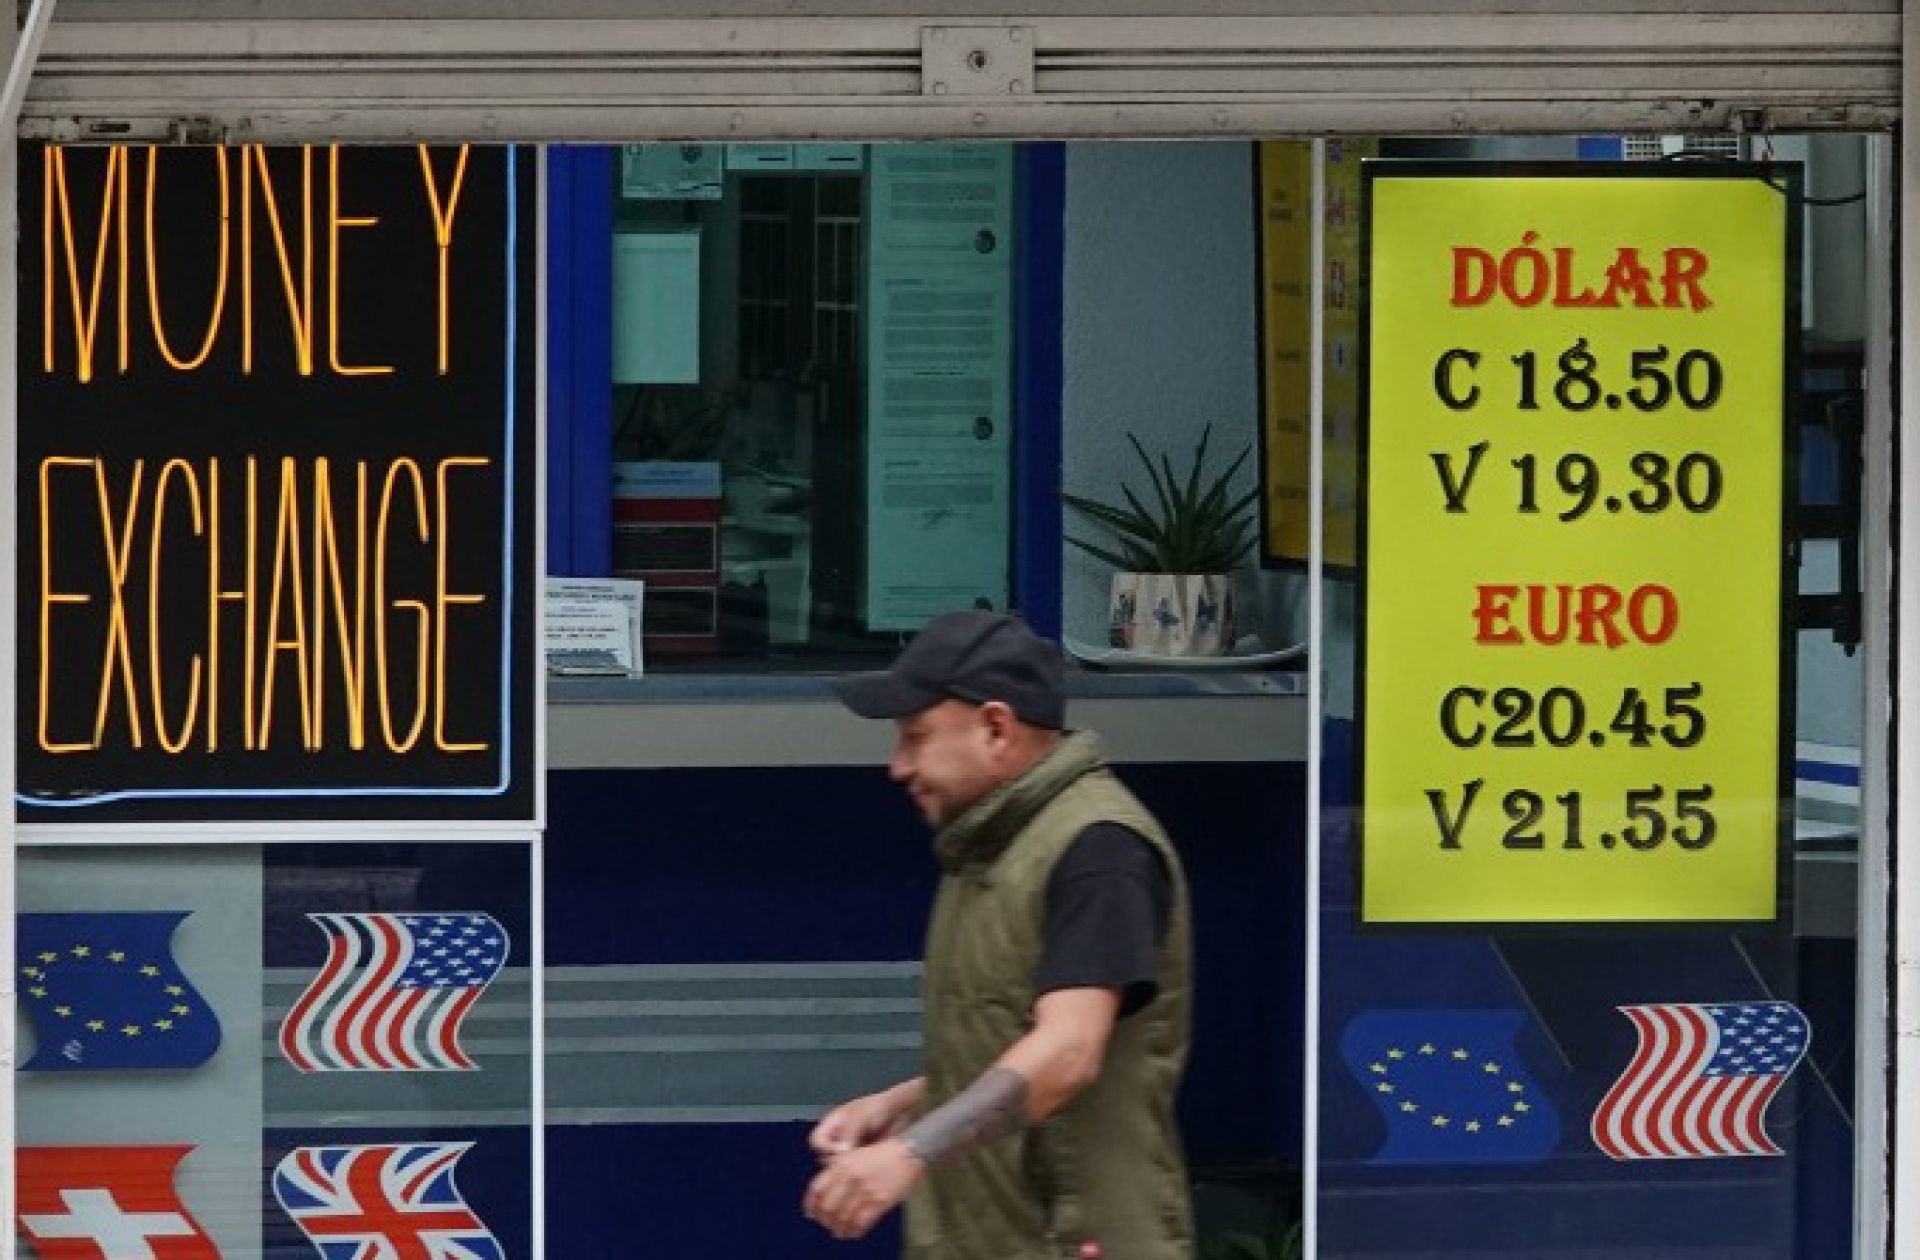 MONEY
EXCHANGE
DÓLAR
C 18.50
V 19.30
EURO
C20.45
V 21.55